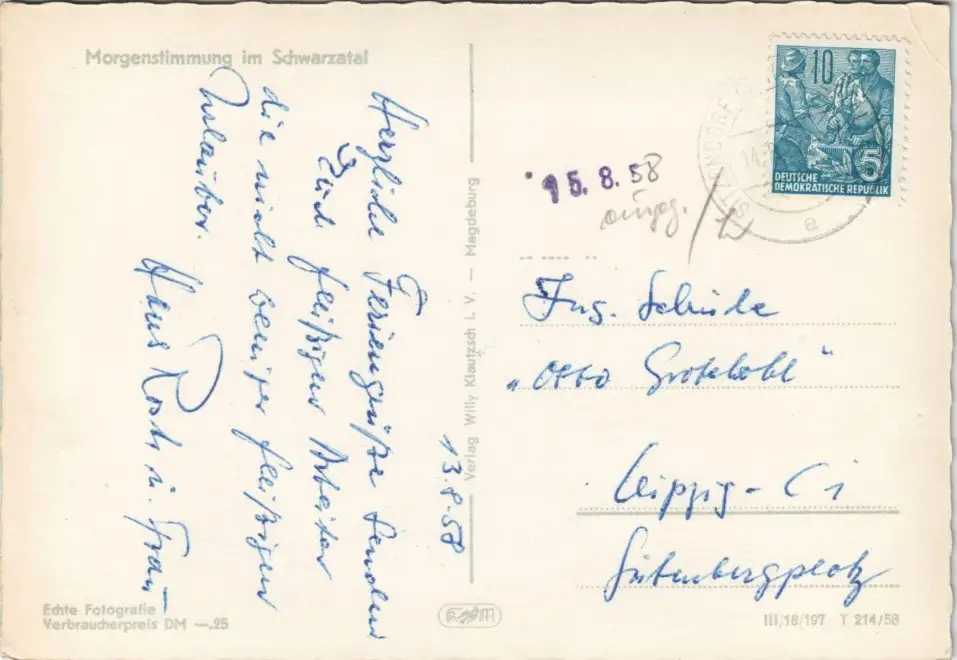 Morgenstimmung im Schwarzatal
13.8.58
Herzliche Feriengrüße senden
Euch fleißigen Arbeiter
die nicht weniger fleißigen
Urlauber.
Hans Roth u. Frau
Echte Fotografie
Verbraucherpreis DM —.25
Verlag Willy Klautzsch i. V. — Magdeburg
10
5
DEUTSCHE
DEMOKRATISCHE REPUBLIK
SITZENDORF
a
15.8.58
Ing. Schule
„Otto Grotewohl"
Leipzig - C 1
Gutenbergplatz
III/18/197 T 214/58